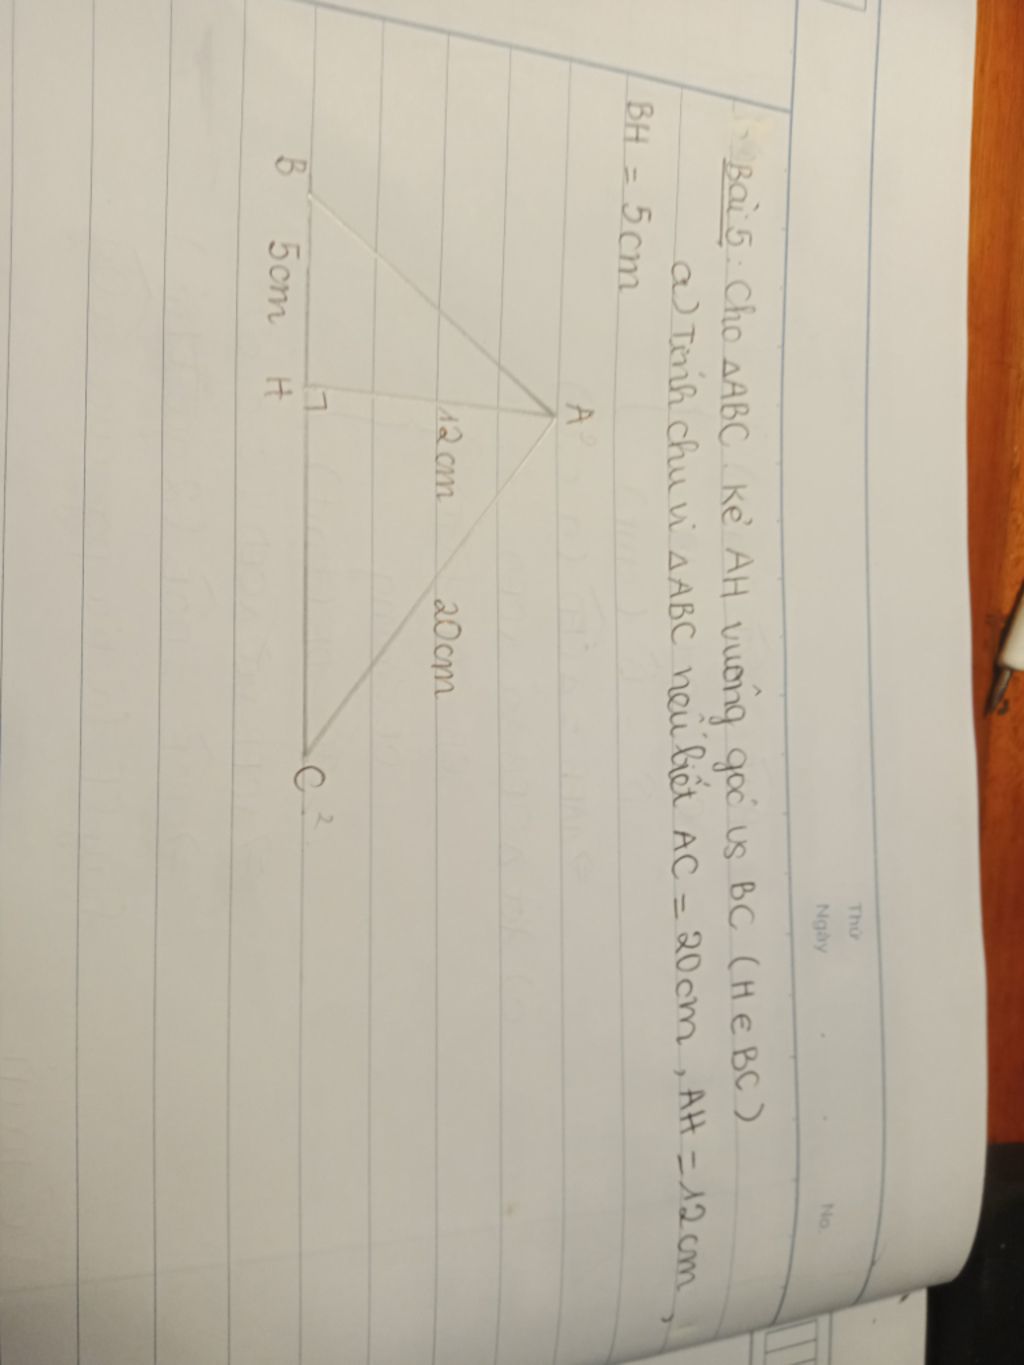 Thứ
Ngày . . No.
Bài 5: Cho ΔABC. Kẻ AH vuông góc vs BC (H ∈ BC)
a) Tính chu vi ΔABC nếu biết AC = 20cm, AH = 12cm,
BH = 5cm
A
12cm 20cm
B 5cm H C